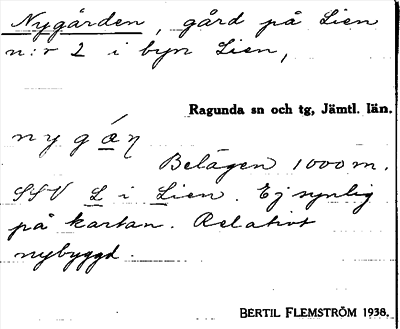 Nygården, gård på Lien
n:r 2 i byn Lien,
Ragunda sn och tg, Jämtl. län.
Belägen 1000 m.
SSV L i Lien. Ej synlig
på kartan. Relativt
nybyggd.
BERTIL FLEMSTRÖM 1938.